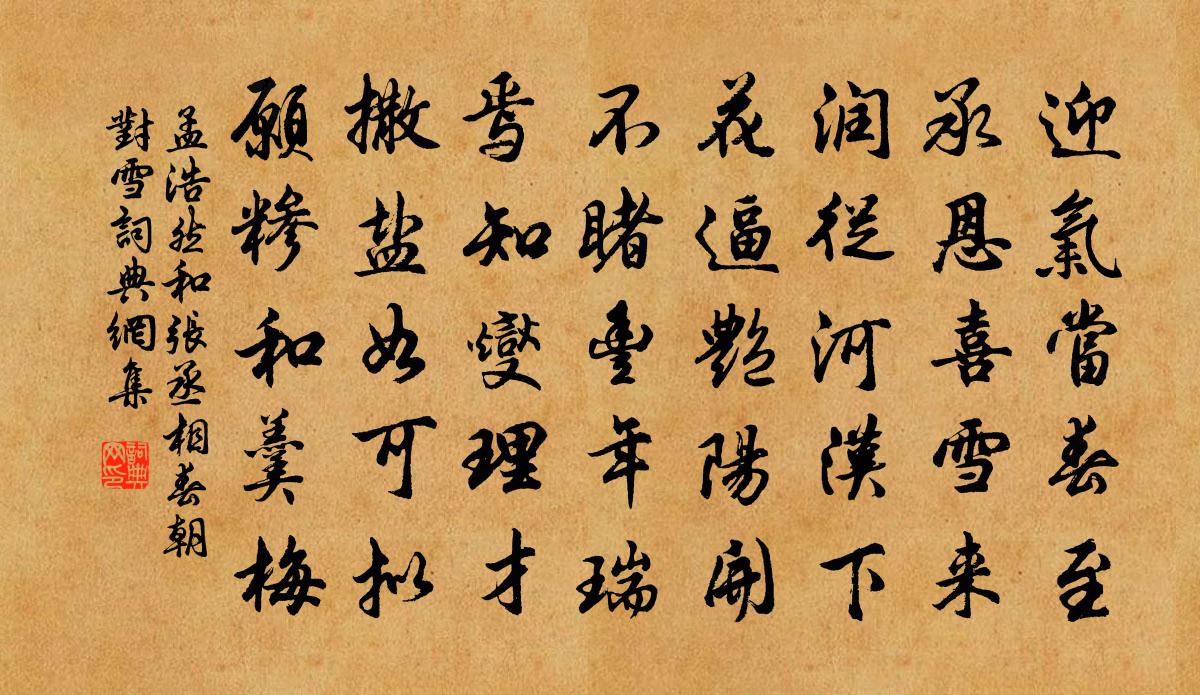 迎氣當春至
承恩喜雪来
润從河漢下
花逼艷陽開
不睹豊年瑞
焉知燮理才
撒盐如可拟
願糝和羹梅
孟浩然和張丞相春朝
對雪詞典網集
詞典网印